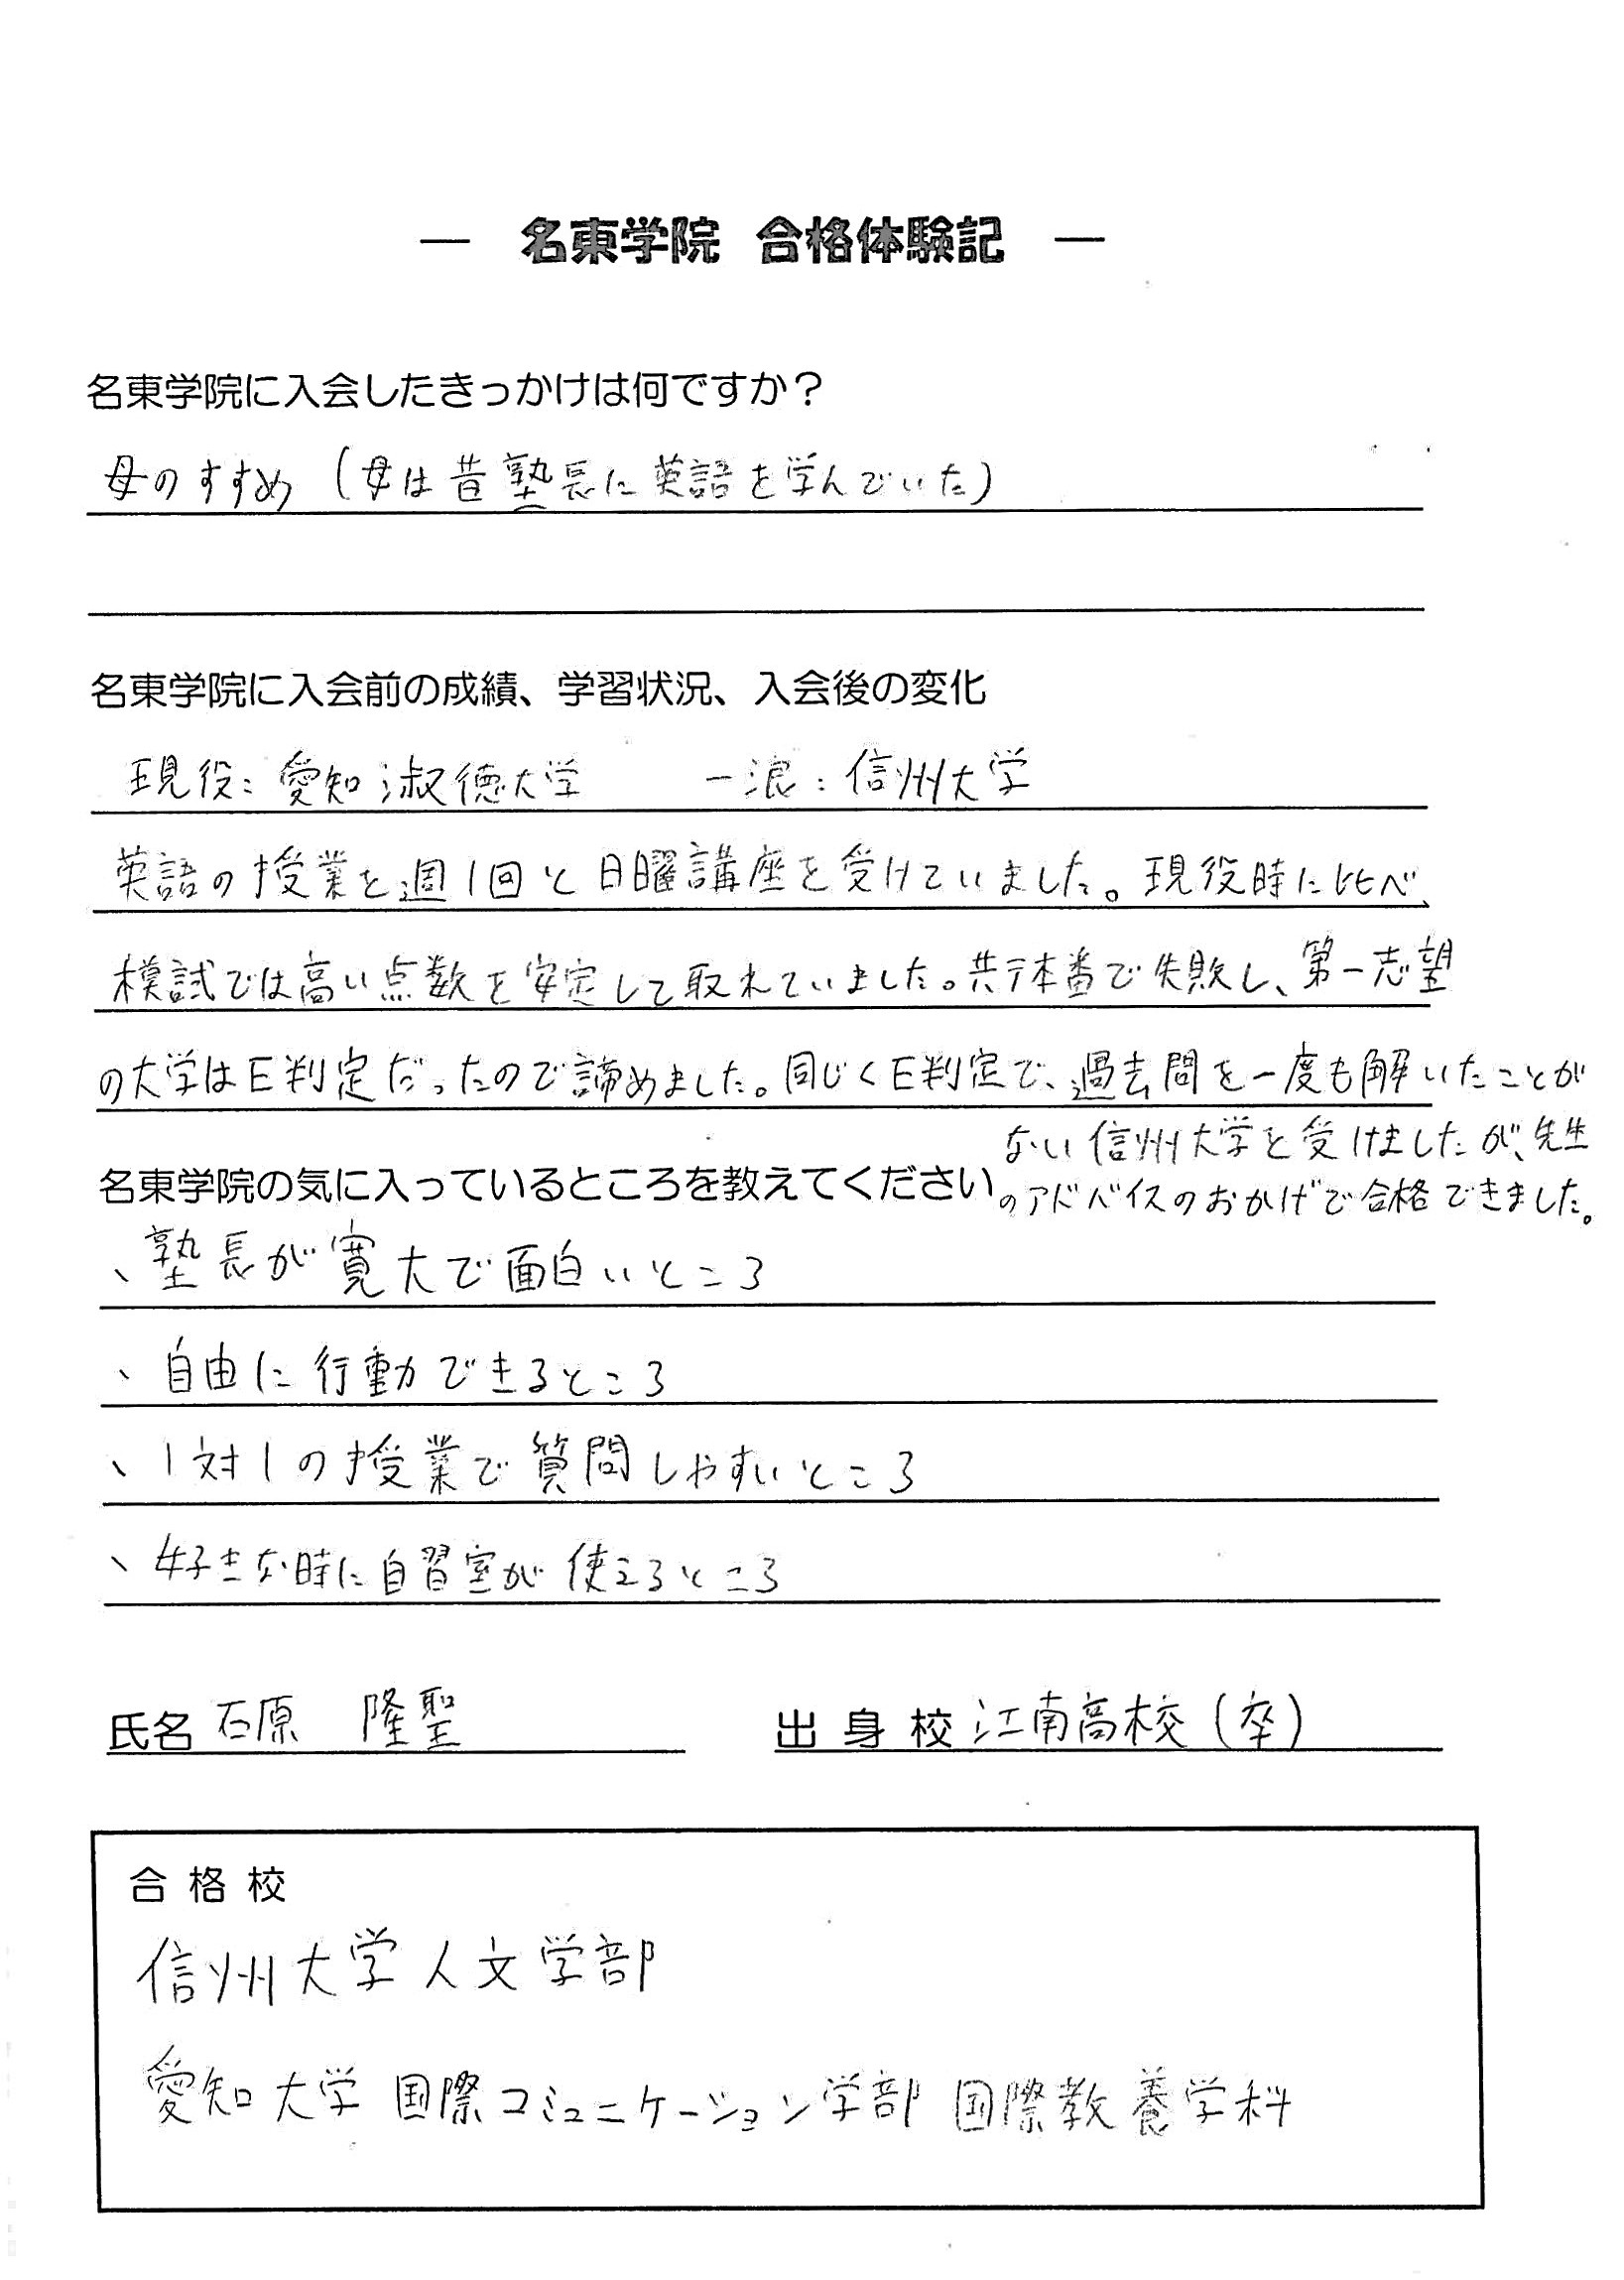 ― 名東学院 合格体験記 ―
名東学院に入会したきっかけは何ですか？
母のすすめ（母は昔塾長に英語を学んでいた）
名東学院に入会前の成績、学習状況、入会後の変化
現役：愛知淑徳大学 一浪：信州大学
英語の授業を週1回と日曜講座を受けていました。現役時に比べ、
模試では高い点数を安定して取れていました。共テ本番で失敗し、第一志望
の大学はE判定だったので諦めました。同じくE判定で、過去問を一度も解いたことが
ない信州大学を受けましたが、先生
のアドバイスのおかげで合格できました。
名東学院の気に入っているところを教えてください
、塾長が寛大で面白いところ
、自由に行動できるところ
、1対1の授業で質問しやすいところ
、好きな時に自習室が使えるところ
氏名 石原 隆聖 出身校 江南高校（卒）
合格校
信州大学人文学部
愛知大学 国際コミュニケーション学部 国際教養学科